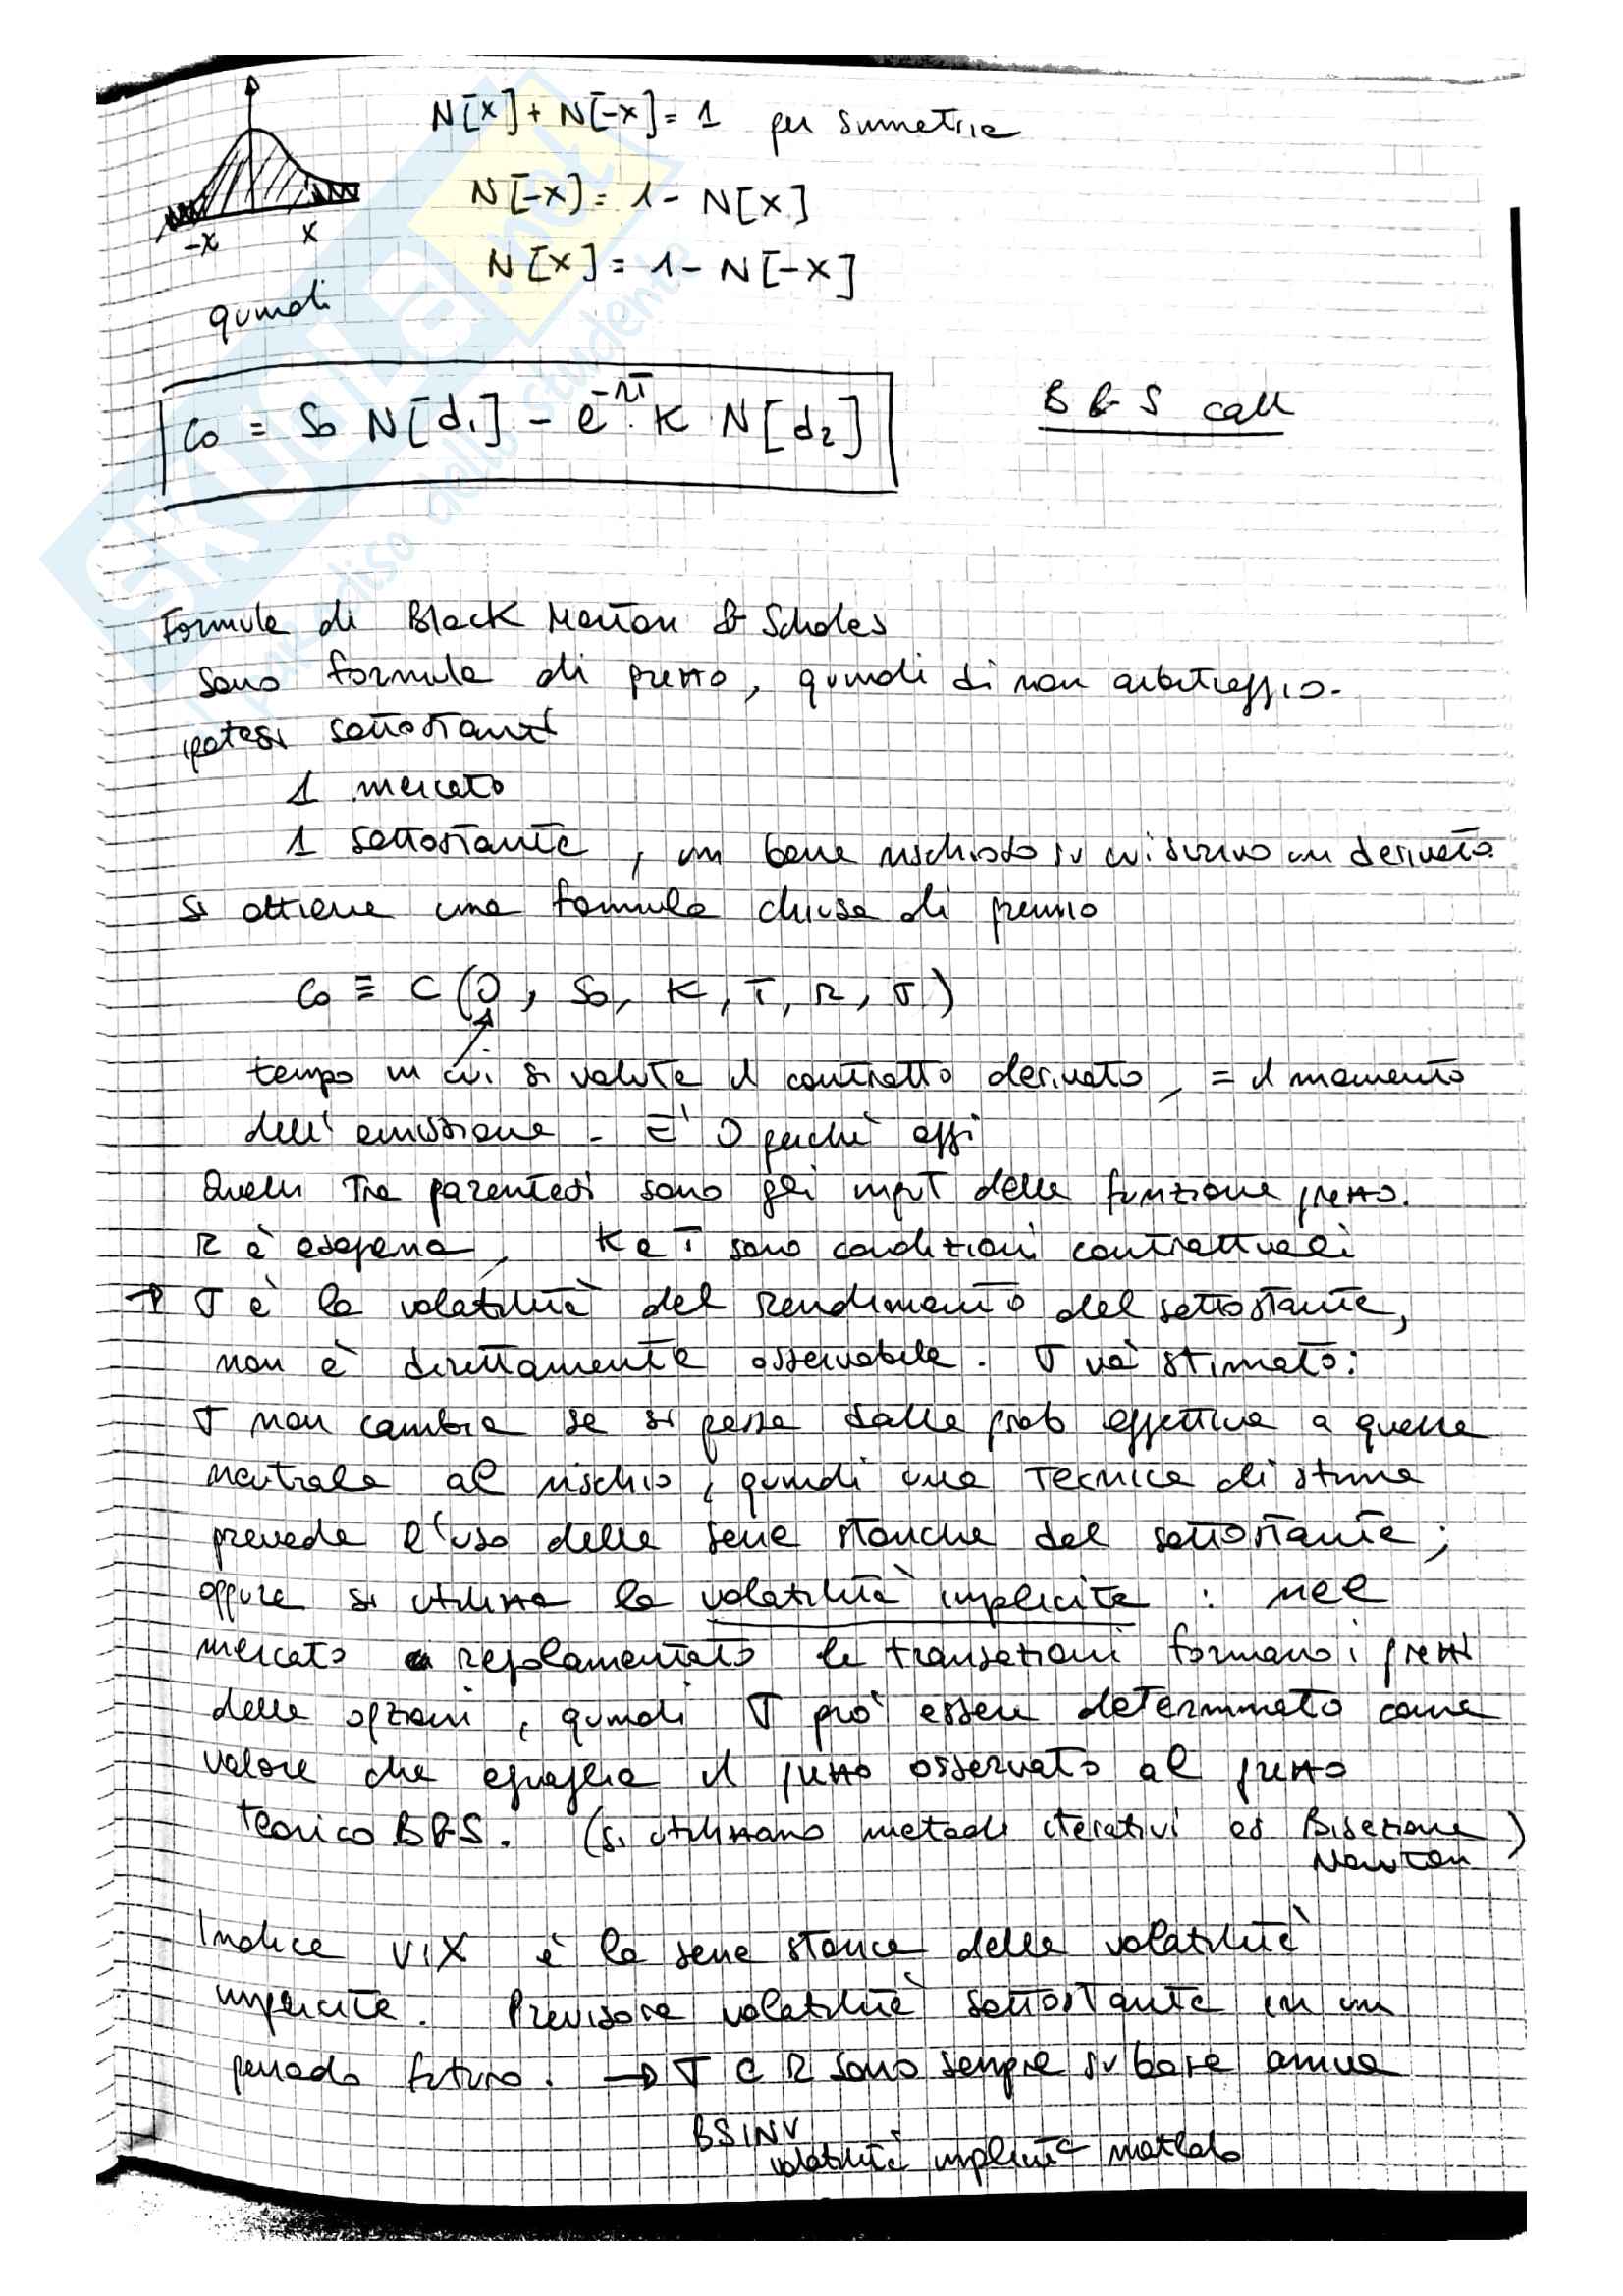 N[x] + N[-x] = 1 per simmetria
N[-x] = 1 - N[x]
N[x] = 1 - N[-x]
-x x
quindi
C₀ = S₀ N[d₁] - e^{-rT} · K N[d₂]
B & S call
Formule di Black Merton & Scholes
sono formule di prezzo, quindi di non arbitraggio.
ipotesi sottostanti
1 mercato
1 sottostante, un bene rischioso su cui scrivo un derivato
si ottiene una formula chiusa di prezzo
C₀ ≡ C (0, S₀, K, T, r, σ)
tempo in cui si valuta il contratto derivato, = il momento
dell'emissione - È 0 perché oggi
Quelli tra parentesi sono gli input della funzione prezzo.
r è esogena, K e T sono condizioni contrattuali
→ σ è la volatilità del rendimento del sottostante,
non è direttamente osservabile. σ va stimato:
σ non cambia se si passa dalla prob effettiva a quella
neutrale al rischio, quindi una tecnica di stima
prevede l'uso delle serie storiche del sottostante;
oppure si utilizza la volatilità implicita : nel
mercato regolamentato le transazioni formano i prezzi
delle opzioni, quindi σ può essere determinato come
valore che eguaglia il prezzo osservato al prezzo
teorico B&S. (si utilizzano metodi iterativi es Bisezione)
Newton
Indice VIX è la serie storica delle volatilità
implicite. Previsore volatilità sottostante in un
periodo futuro. → σ e r sono sempre su base annua
BSINV
volatilità implicita matlab
SKUOLA.net
il paradiso dello studente